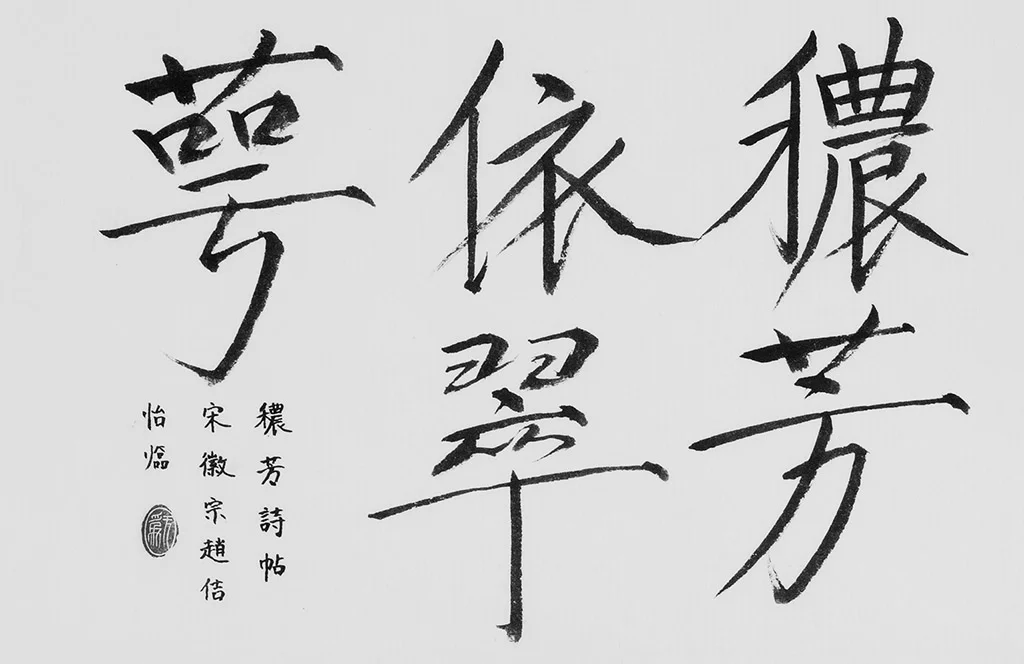 穠芳
依翠
萼
穠芳詩帖
宋徽宗趙佶
怡臨